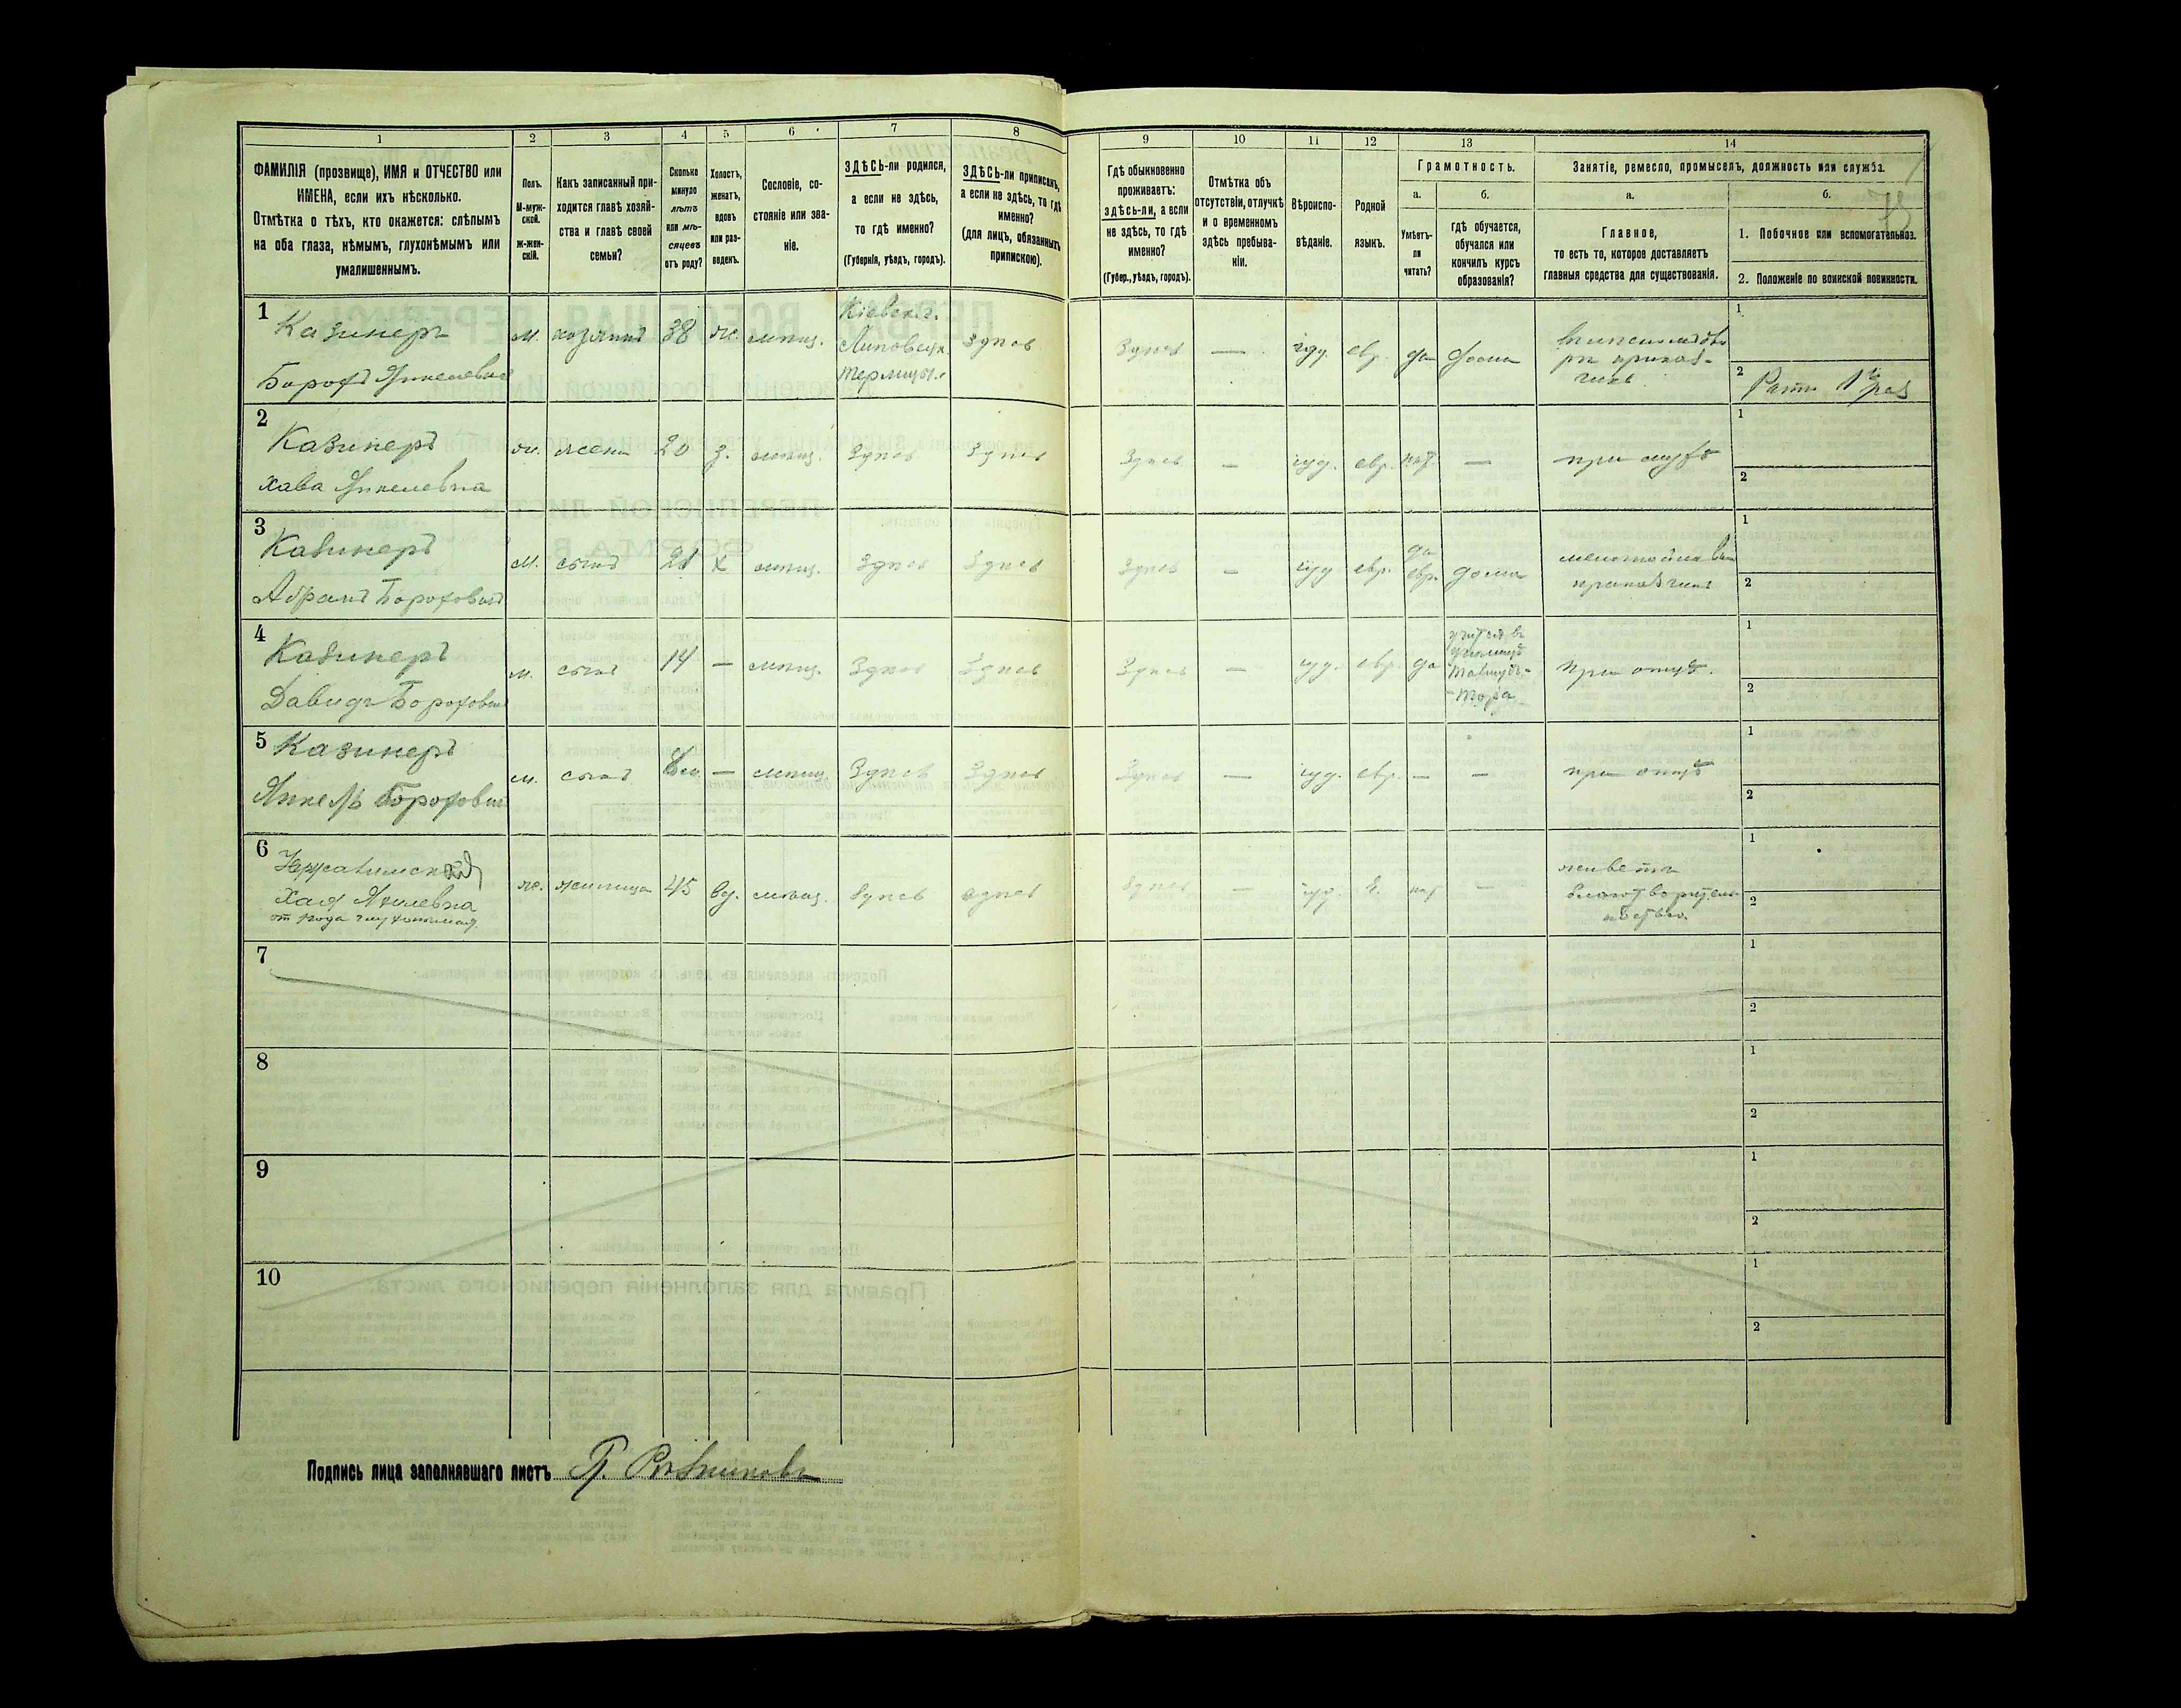 1 2 3 4 5 6 7 8 9 10 11 12 13 14
ФАМИЛІЯ (прозвище), ИМЯ и ОТЧЕСТВО или
ИМЕНА, если ихъ нѣсколько.
Отмѣтка о тѣхъ, кто окажется: слѣпымъ
на оба глаза, нѣмымъ, глухонѣмымъ или
умалишеннымъ.
Полъ.
М-муж-
ской.
ж-жен-
скій.
Какъ записанный при-
ходится главѣ хозяй-
ства и главѣ своей
семьи?
Сколько
минуло
лѣтъ
или мѣ-
сяцевъ
отъ роду?
Холостъ,
женатъ,
вдовъ
или раз-
веденъ.
Сословіе, со-
стояніе или зва-
ніе.
ЗДѢСЬ-ли родился,
а если не здѣсь,
то гдѣ именно?
(Губернія, уѣздъ, городъ).
ЗДѢСЬ-ли приписанъ,
а если не здѣсь, то гдѣ
именно?
(для лицъ, обязанныхъ
припискою).
Гдѣ обыкновенно
проживаетъ:
здѣсь-ли, а если
не здѣсь, то гдѣ
именно?
(Губер., уѣздъ, городъ).
Отмѣтка объ
отсутствіи, отлучкѣ
и о временномъ
здѣсь пребыва-
ніи.
Вѣроиспо-
вѣданіе.
Родной
языкъ.
Грамотность.
а.
Умѣетъ-
ли
читать?
б.
гдѣ обучается,
обучался или
кончилъ курсъ
образованія?
Занятіе, ремесло, промыселъ, должность или служба.
а.
Главное,
то есть то, которое доставляетъ
главныя средства для существованія.
б.
1. Побочное или вспомогательное.
2. Положеніе по воинской повинности.
1 Казинеръ
Борохъ Янкелевичъ
м. хозяинъ 38 ж. мѣщ.
Кіевск. г.
Липовецк.
здѣсь здѣсь — іуд. евр. да дома
1
2
2 Казинеръ
Хава Янкелевна
ж. жена 20 з. мѣщ. здѣсь здѣсь здѣсь — іуд. евр. нѣт — при мужѣ
1
2
3 Казинеръ
Абрамъ Бороховичъ
м. сынъ 21 х мѣщ. здѣсь здѣсь здѣсь — іуд. евр. да
евр. дома
приказчикъ
1
2
4 Казинеръ
Давидъ Бороховичъ
м. сынъ 14 — мѣщ. здѣсь здѣсь здѣсь — іуд. евр. да
Талмудъ-
-Тора
при отцѣ.
1
2
5 Казинеръ
Янкель Бороховичъ
м. сынъ — мѣщ. здѣсь здѣсь здѣсь — іуд. евр. — — при отцѣ
1
2
6
Хая
от рода глухонѣмая
ж. жилица 45 вд. мѣщ. здѣсь здѣсь здѣсь — іуд. нѣт —
живетъ
1
2
7
1
2
8
1
2
9
1
2
10
1
2
Подпись лица заполнявшаго листъ